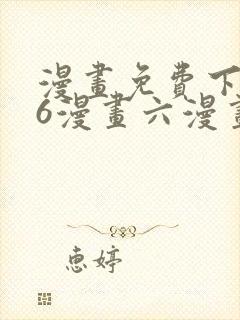 漫畫免費下
6漫畫六漫畫
惠婷